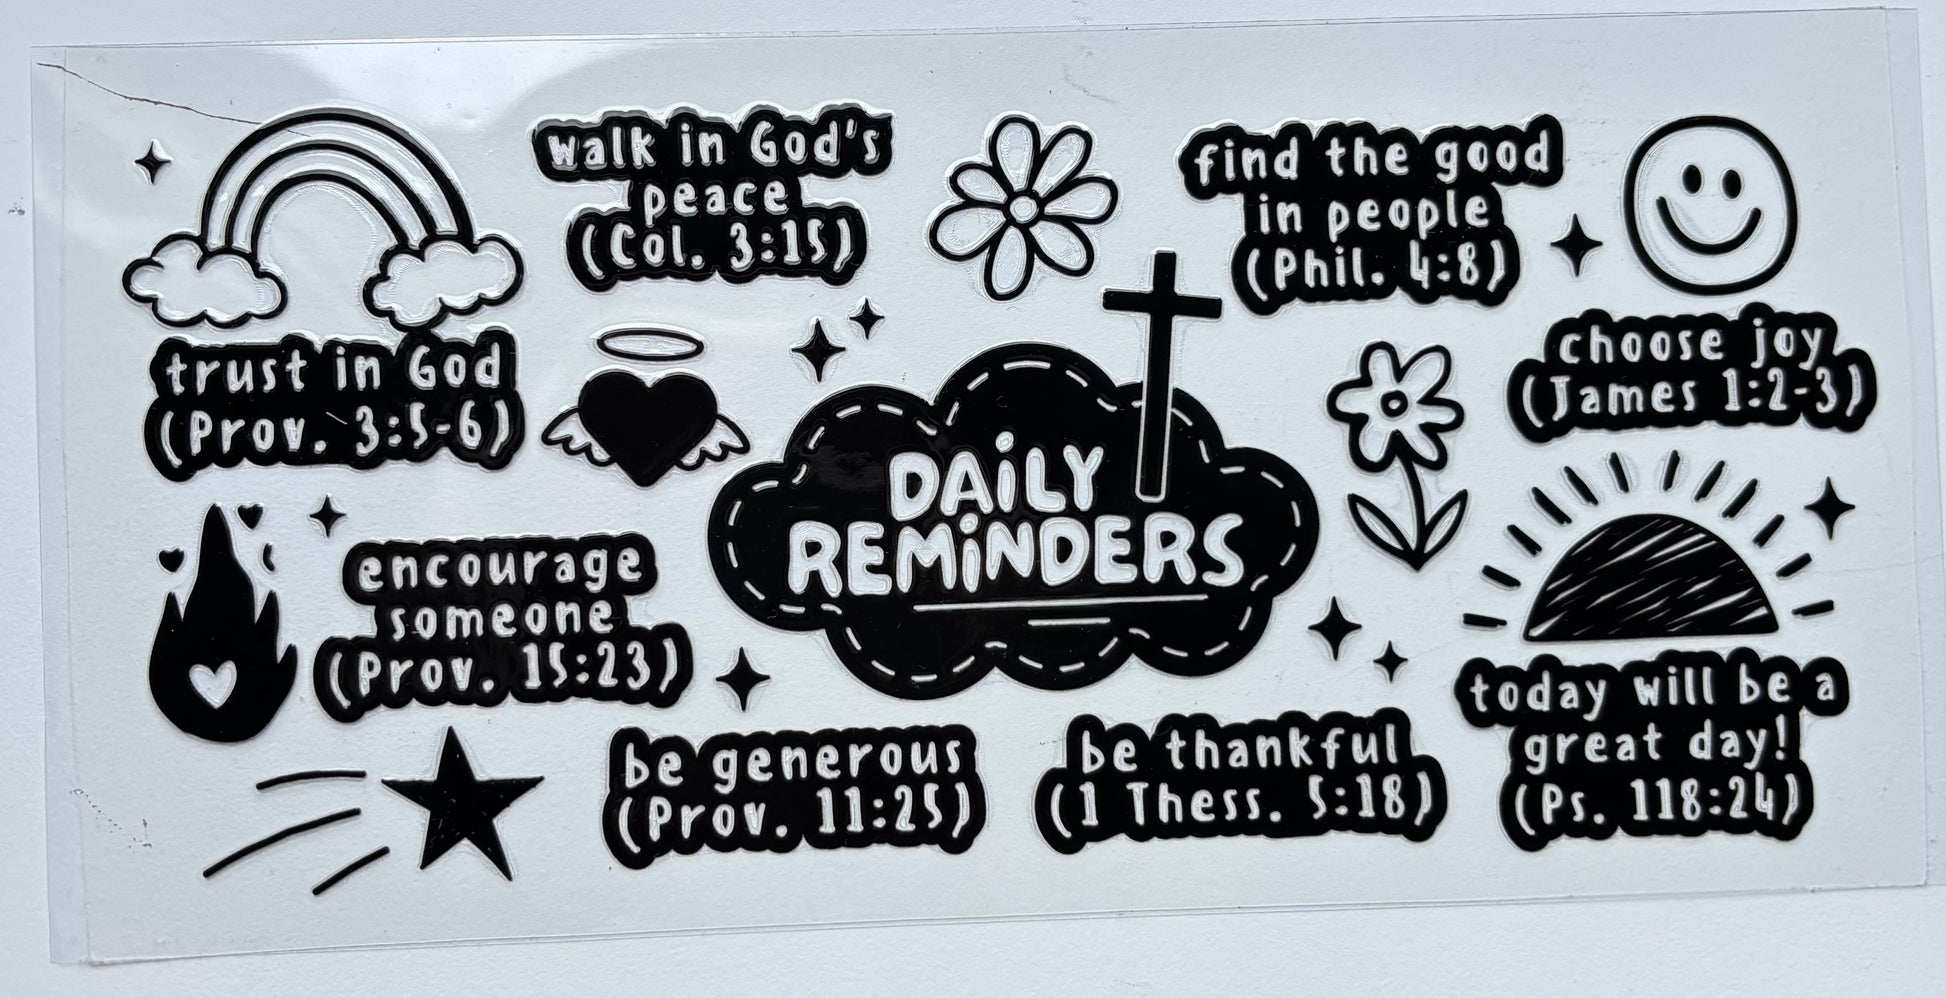 walk in God's
peace
(Col. 3:15)
find the good
in people
(Phil. 4:8)
trust in God
(Prov. 3:5-6)
choose joy
(James 1:2-3)
DAiLY
REMiNDERS
encourage
someone
(Prov. 15:23)
today will be a
great day!
(Ps. 118:24)
be generous
(Prov. 11:25)
be thankful
(1 Thess. 5:18)